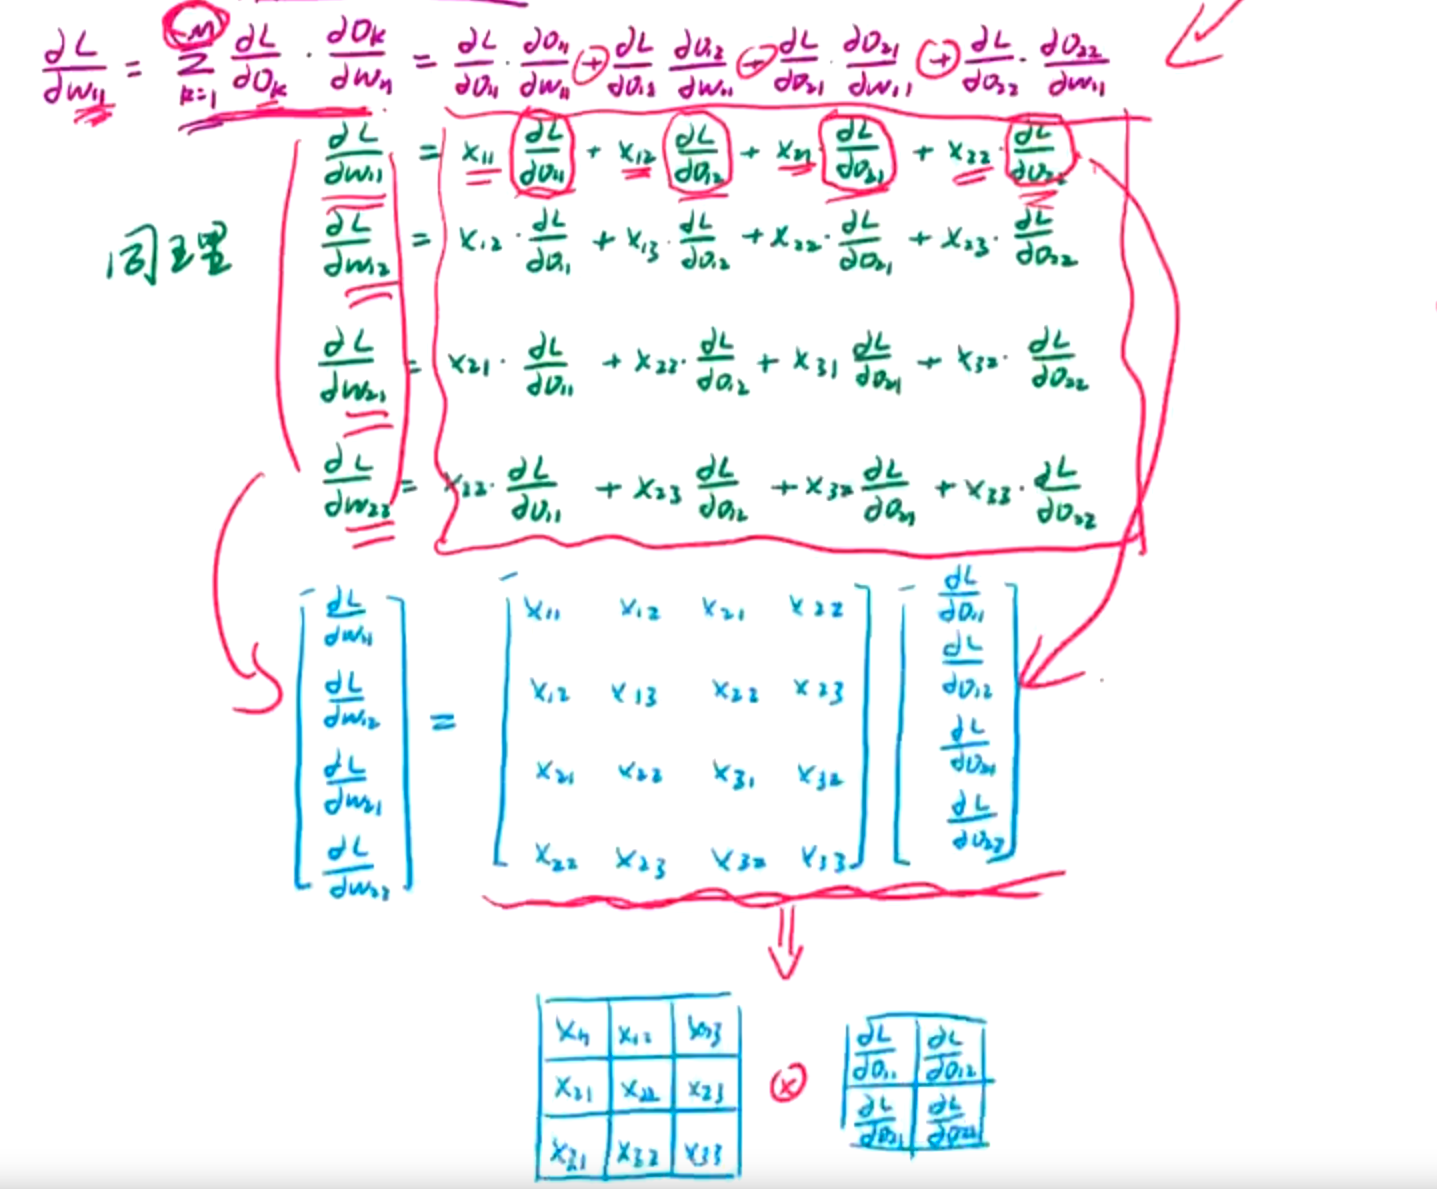 ∂L/∂w₁₁ = Σₖ₌₁ᵐ ∂L/∂Oₖ · ∂Oₖ/∂w₁₁ = ∂L/∂O₁₁ · ∂O₁₁/∂w₁₁ + ∂L/∂O₁₂ ∂O₁₂/∂w₁₁ + ∂L/∂O₂₁ · ∂O₂₁/∂w₁₁ + ∂L/∂O₂₂ · ∂O₂₂/∂w₁₁
∂L/∂w₁₁ = x₁₁ ∂L/∂O₁₁ + x₁₂ ∂L/∂O₁₂ + x₂₁ ∂L/∂O₂₁ + x₂₂ · ∂L/∂O₂₂
同理 ∂L/∂w₁₂ = x₁₂ · ∂L/∂O₁₁ + x₁₃ · ∂L/∂O₁₂ + x₂₂ · ∂L/∂O₂₁ + x₂₃ · ∂L/∂O₂₂
∂L/∂w₂₁ = x₂₁ · ∂L/∂O₁₁ + x₂₂ · ∂L/∂O₁₂ + x₃₁ ∂L/∂O₂₁ + x₃₂ · ∂L/∂O₂₂
∂L/∂w₂₂ = x₂₂ · ∂L/∂O₁₁ + x₂₃ ∂L/∂O₁₂ + x₃₂ ∂L/∂O₂₁ + x₃₃ · ∂L/∂O₂₂
∂L/∂w₁₁ x₁₁ x₁₂ x₂₁ x₂₂ ∂L/∂O₁₁
∂L/∂w₁₂ = x₁₂ x₁₃ x₂₂ x₂₃ ∂L/∂O₁₂
∂L/∂w₂₁ x₂₁ x₂₂ x₃₁ x₃₂ ∂L/∂O₂₁
∂L/∂w₂₂ x₂₂ x₂₃ x₃₂ x₃₃ ∂L/∂O₂₂
⇓
x₁₁ x₁₂ x₁₃ ∂L/∂O₁₁ ∂L/∂O₁₂
x₂₁ x₂₂ x₂₃ ⊗
x₃₁ x₃₂ x₃₃ ∂L/∂O₂₁ ∂L/∂O₂₂